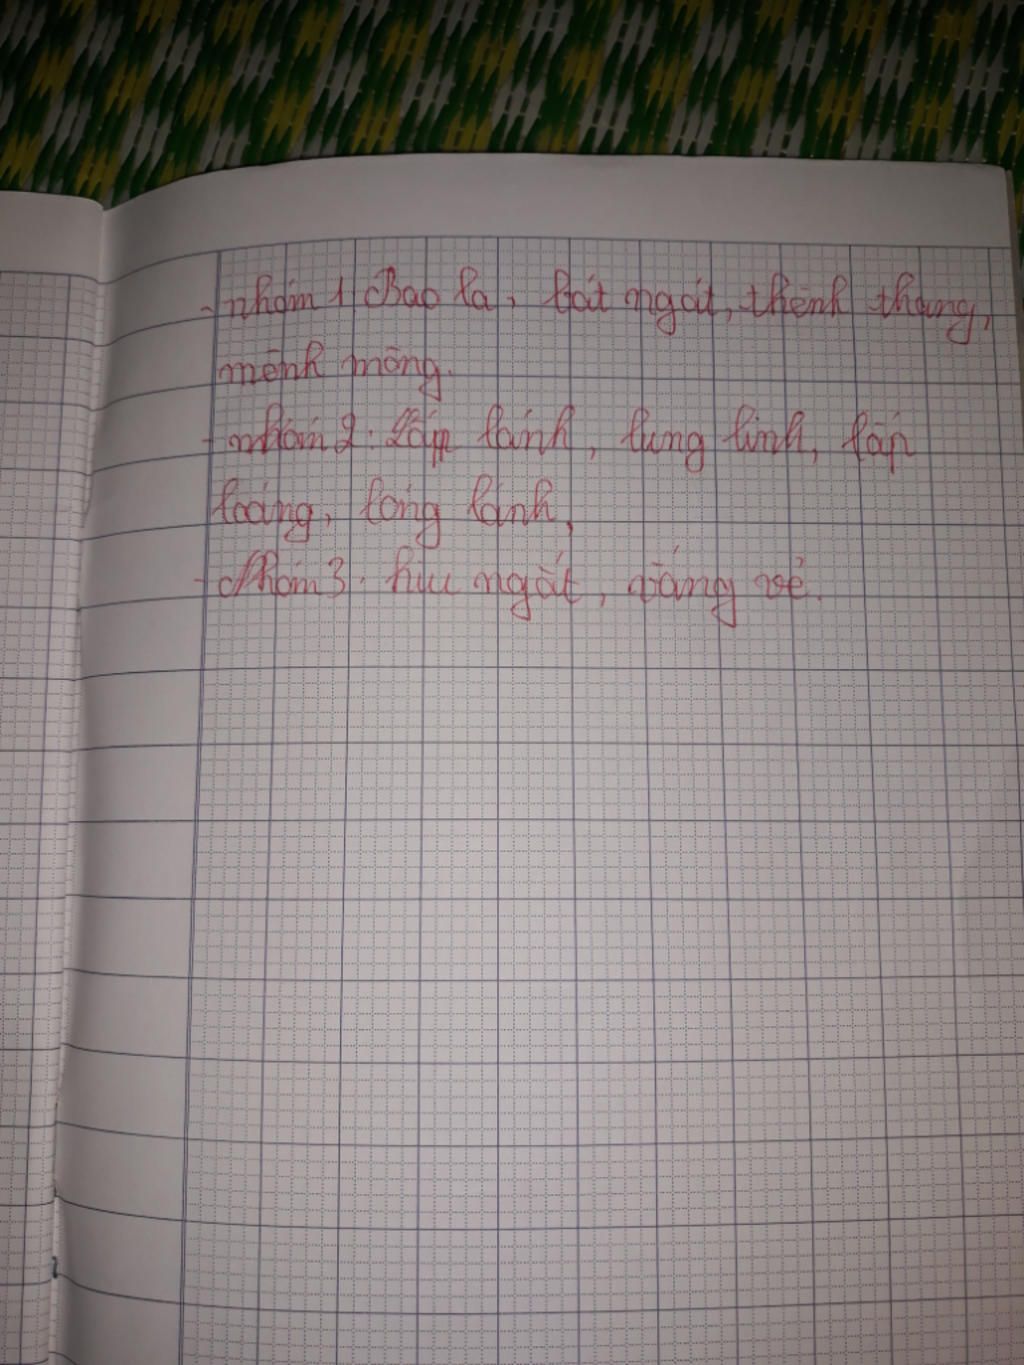 - nhóm 1: Bao la, bát ngát, thênh thang,
mênh mông.
- nhóm 2: Lấp lánh, lung linh, lấp
loáng, lóng lánh,
- Nhóm 3: hiu ngắt, vắng vẻ.